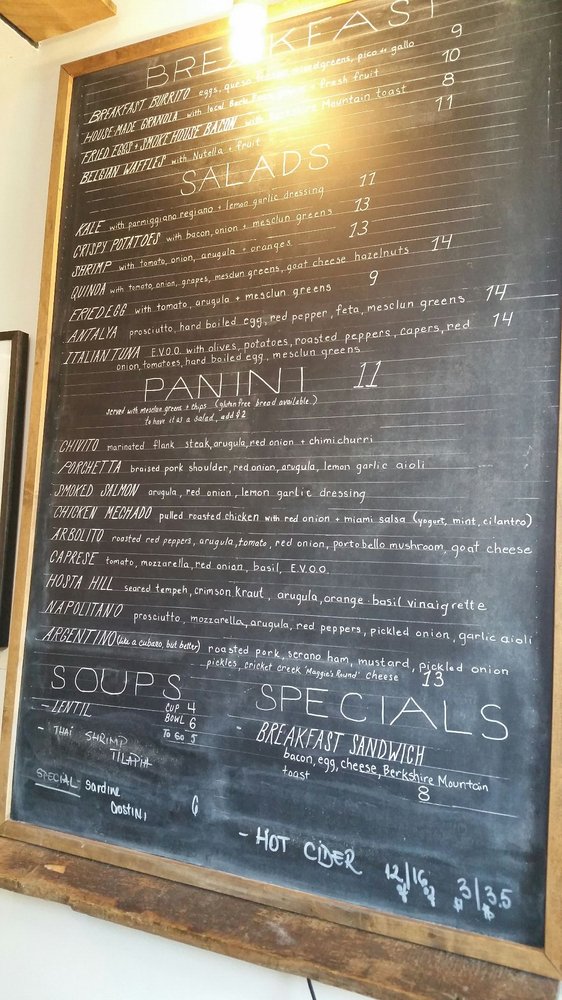 BREAKFAST
BREAKFAST BURRITO eggs, queso greens, pico de gallo 9
HOUSE MADE GRANOLA with local fresh fruit 10
FRIED EGGS + SMOKE HOUSE BACON with Berkshire Mountain toast 8
BELGIAN WAFFLES with Nutella + fruit 11
SALADS
KALE with parmiggiano regiano + lemon garlic dressing 11
CRISPY POTATOES with bacon, onion + mesclun greens 13
SHRIMP with tomato, onion, arugula + oranges 13
QUINOA with tomato, onion, grapes, mesclun greens, goat cheese hazelnuts 14
FRIED EGG with tomato, arugula + mesclun greens 9
ANTALYA prosciutto, hard boiled egg, red pepper, feta, mesclun greens 14
ITALIAN TUNA E.V.O.O. with olives, potatoes, roasted peppers, capers, red 14
onion, tomatoes, hard boiled egg, mesclun greens
PANINI 11
served with mesclun greens + chips (gluten free bread available.)
to have it as a salad, add $2
CHIVITO marinated flank steak, arugula, red onion + chimichurri
PORCHETTA braised pork shoulder, red onion, arugula, lemon garlic aioli
SMOKED SALMON arugula, red onion, lemon garlic dressing
CHICKEN MECHADO pulled roasted chicken with red onion + miami salsa (yogurt, mint, cilantro)
ARBOLITO roasted red peppers, arugula, tomato, red onion, portobello mushroom, goat cheese
CAPRESE tomato, mozzarella, red onion, basil, E.V.O.O.
HOSTA HILL seared tempeh, crimson kraut, arugula, orange basil vinaigrette
NAPOLITANO prosciutto, mozzarella, arugula, red peppers, pickled onion, garlic aioli
ARGENTINO (like a cubano, but better) roasted pork, serano ham, mustard, pickled onion
pickles, cricket creek "Maggie's Round" cheese 13
SOUPS
- LENTIL CUP 4
BOWL 6
TO GO 5
- THAI SHRIMP
TILAPIA
SPECIAL - Sardine
Crostini 6
SPECIALS
- BREAKFAST SANDWICH
bacon, egg, cheese, Berkshire Mountain
toast 8
- HOT CIDER 12/16 3/3.5